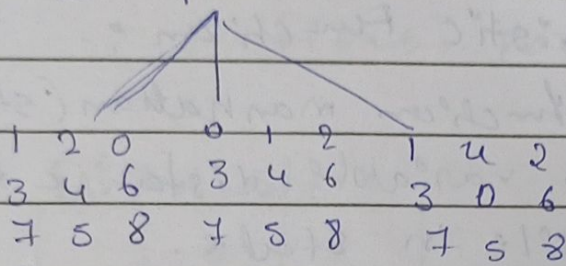 1 2 0 0 1 2 1 4 2
3 4 6 3 4 6 3 0 6
7 5 8 7 5 8 7 5 8